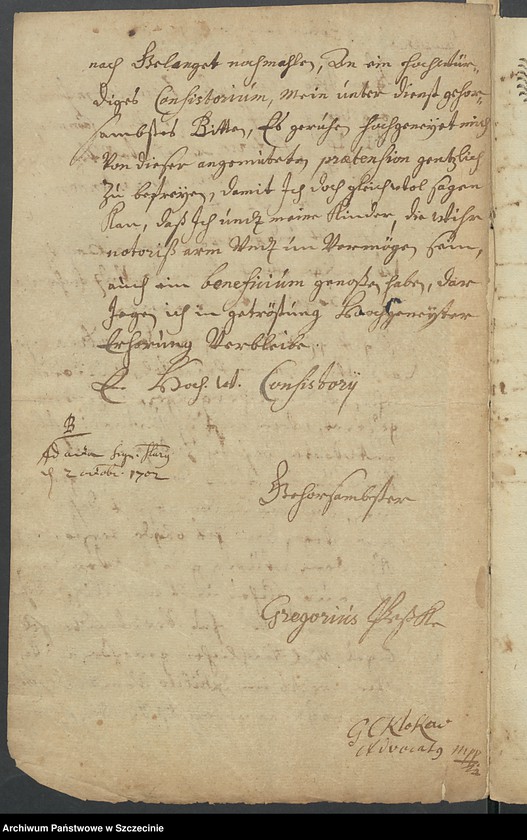 nach Belanget nochmahlen, An ein Hochwür-
diges Consistorium, mein unter dienst gehor-
sambstes Bitten, Es geruhe hochgeneiget mich
Von dieser angemuteten prætension gentzlich
zu befreyen, damit Ich doch gleichwol sagen
kan, daß Ich undt meine Kinder, die wihr
notoriß arm Undt un Vermögen sein,
auch ein beneficium genoßen haben, dar
Jegen ich in getröstung Hochgeneigster
Erhörung Verbleibe.
E. Hoch. w. Consistorij
B
Ad acta Sign. Starg
d. 2 octobr. 1702
Gehorsambster
Gregorius
G C Klokow
Advocatg mpp